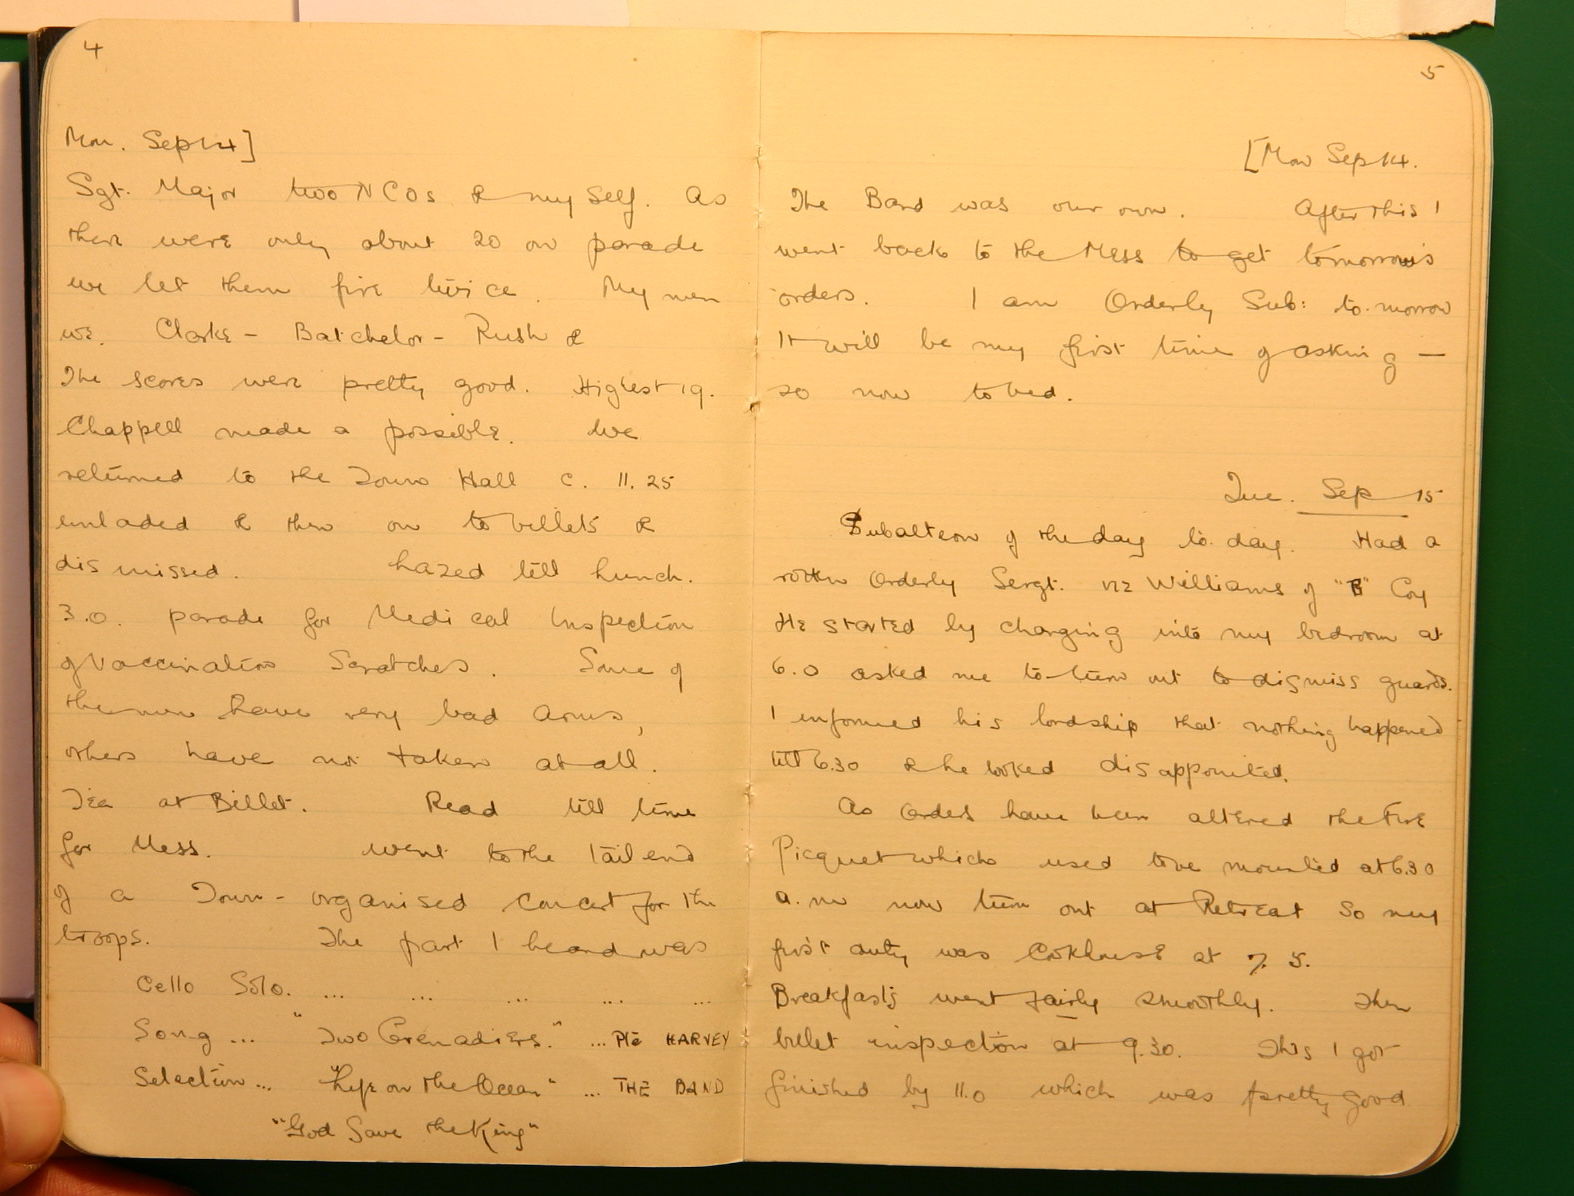 4
Mon. Sep 14]
Sgt. Major two NCOs & my self. As
there were only about 20 on parade
we let them fire twice. My men
we. Clarke - Batchelor - Rush &
The scores were pretty good. Highest 19.
Chappell made a possible. We
returned to the Town Hall c. 11.25
unladed & then on to billets &
dismissed. Lazed till lunch.
3.0. parade for Medical Inspection
of Vaccination Scratches. Some of
the men have very bad arms,
others have not taken at all.
Tea at Billet. Read till time
for Mess. Went to the tail end
of a Town-organised concert for the
troops. The part I heard was
Cello Solo. ... ... ... ... ...
Song ... "Two Grenadiers." ... Pte HARVEY
Selection ... "Life on the Ocean" ... THE BAND
"God Save the King"
5
[Mon Sep 14.
The Band was our own. After this I
went back to the Mess to get tomorrow's
orders. I am Orderly Sub: to.morrow
It will be my first time of asking —
so now to bed.
Tue. Sep 15
Subaltern of the day to.day. Had a
rotten Orderly Sergt. viz Williams of "B" Coy
He started by charging into my bedroom at
6.0 asked me to turn out to dismiss guards.
I informed his lordship that nothing happened
till 6.30 & he looked disappointed.
As Orders have been altered the Fire
Picquet which used to be mounted at 6.30
a.m now turn out at Retreat So my
first duty was Cookhouse at 7.5.
Breakfasts went fairly smoothly. Then
billet inspection at 9.30. This I got
finished by 11.0 which was pretty good